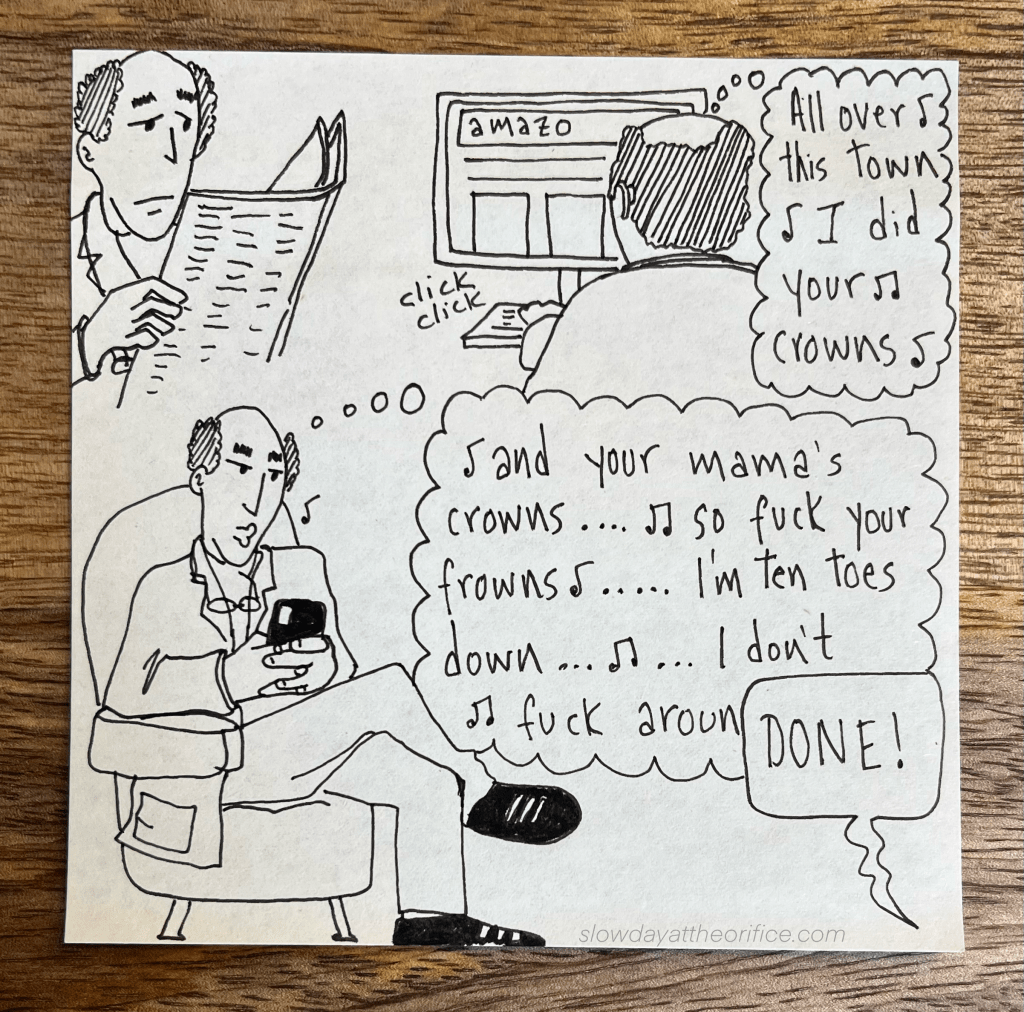 amazo
click
click
All over ♪
this town
♪ I did
your ♫
crowns ♪
♪ and your mama's
crowns .... ♫ so fuck your
frowns ♪ ..... I'm ten toes
down ... ♫ ... I don't
♫ fuck aroun
♪
DONE!
slowdayattheorifice.com